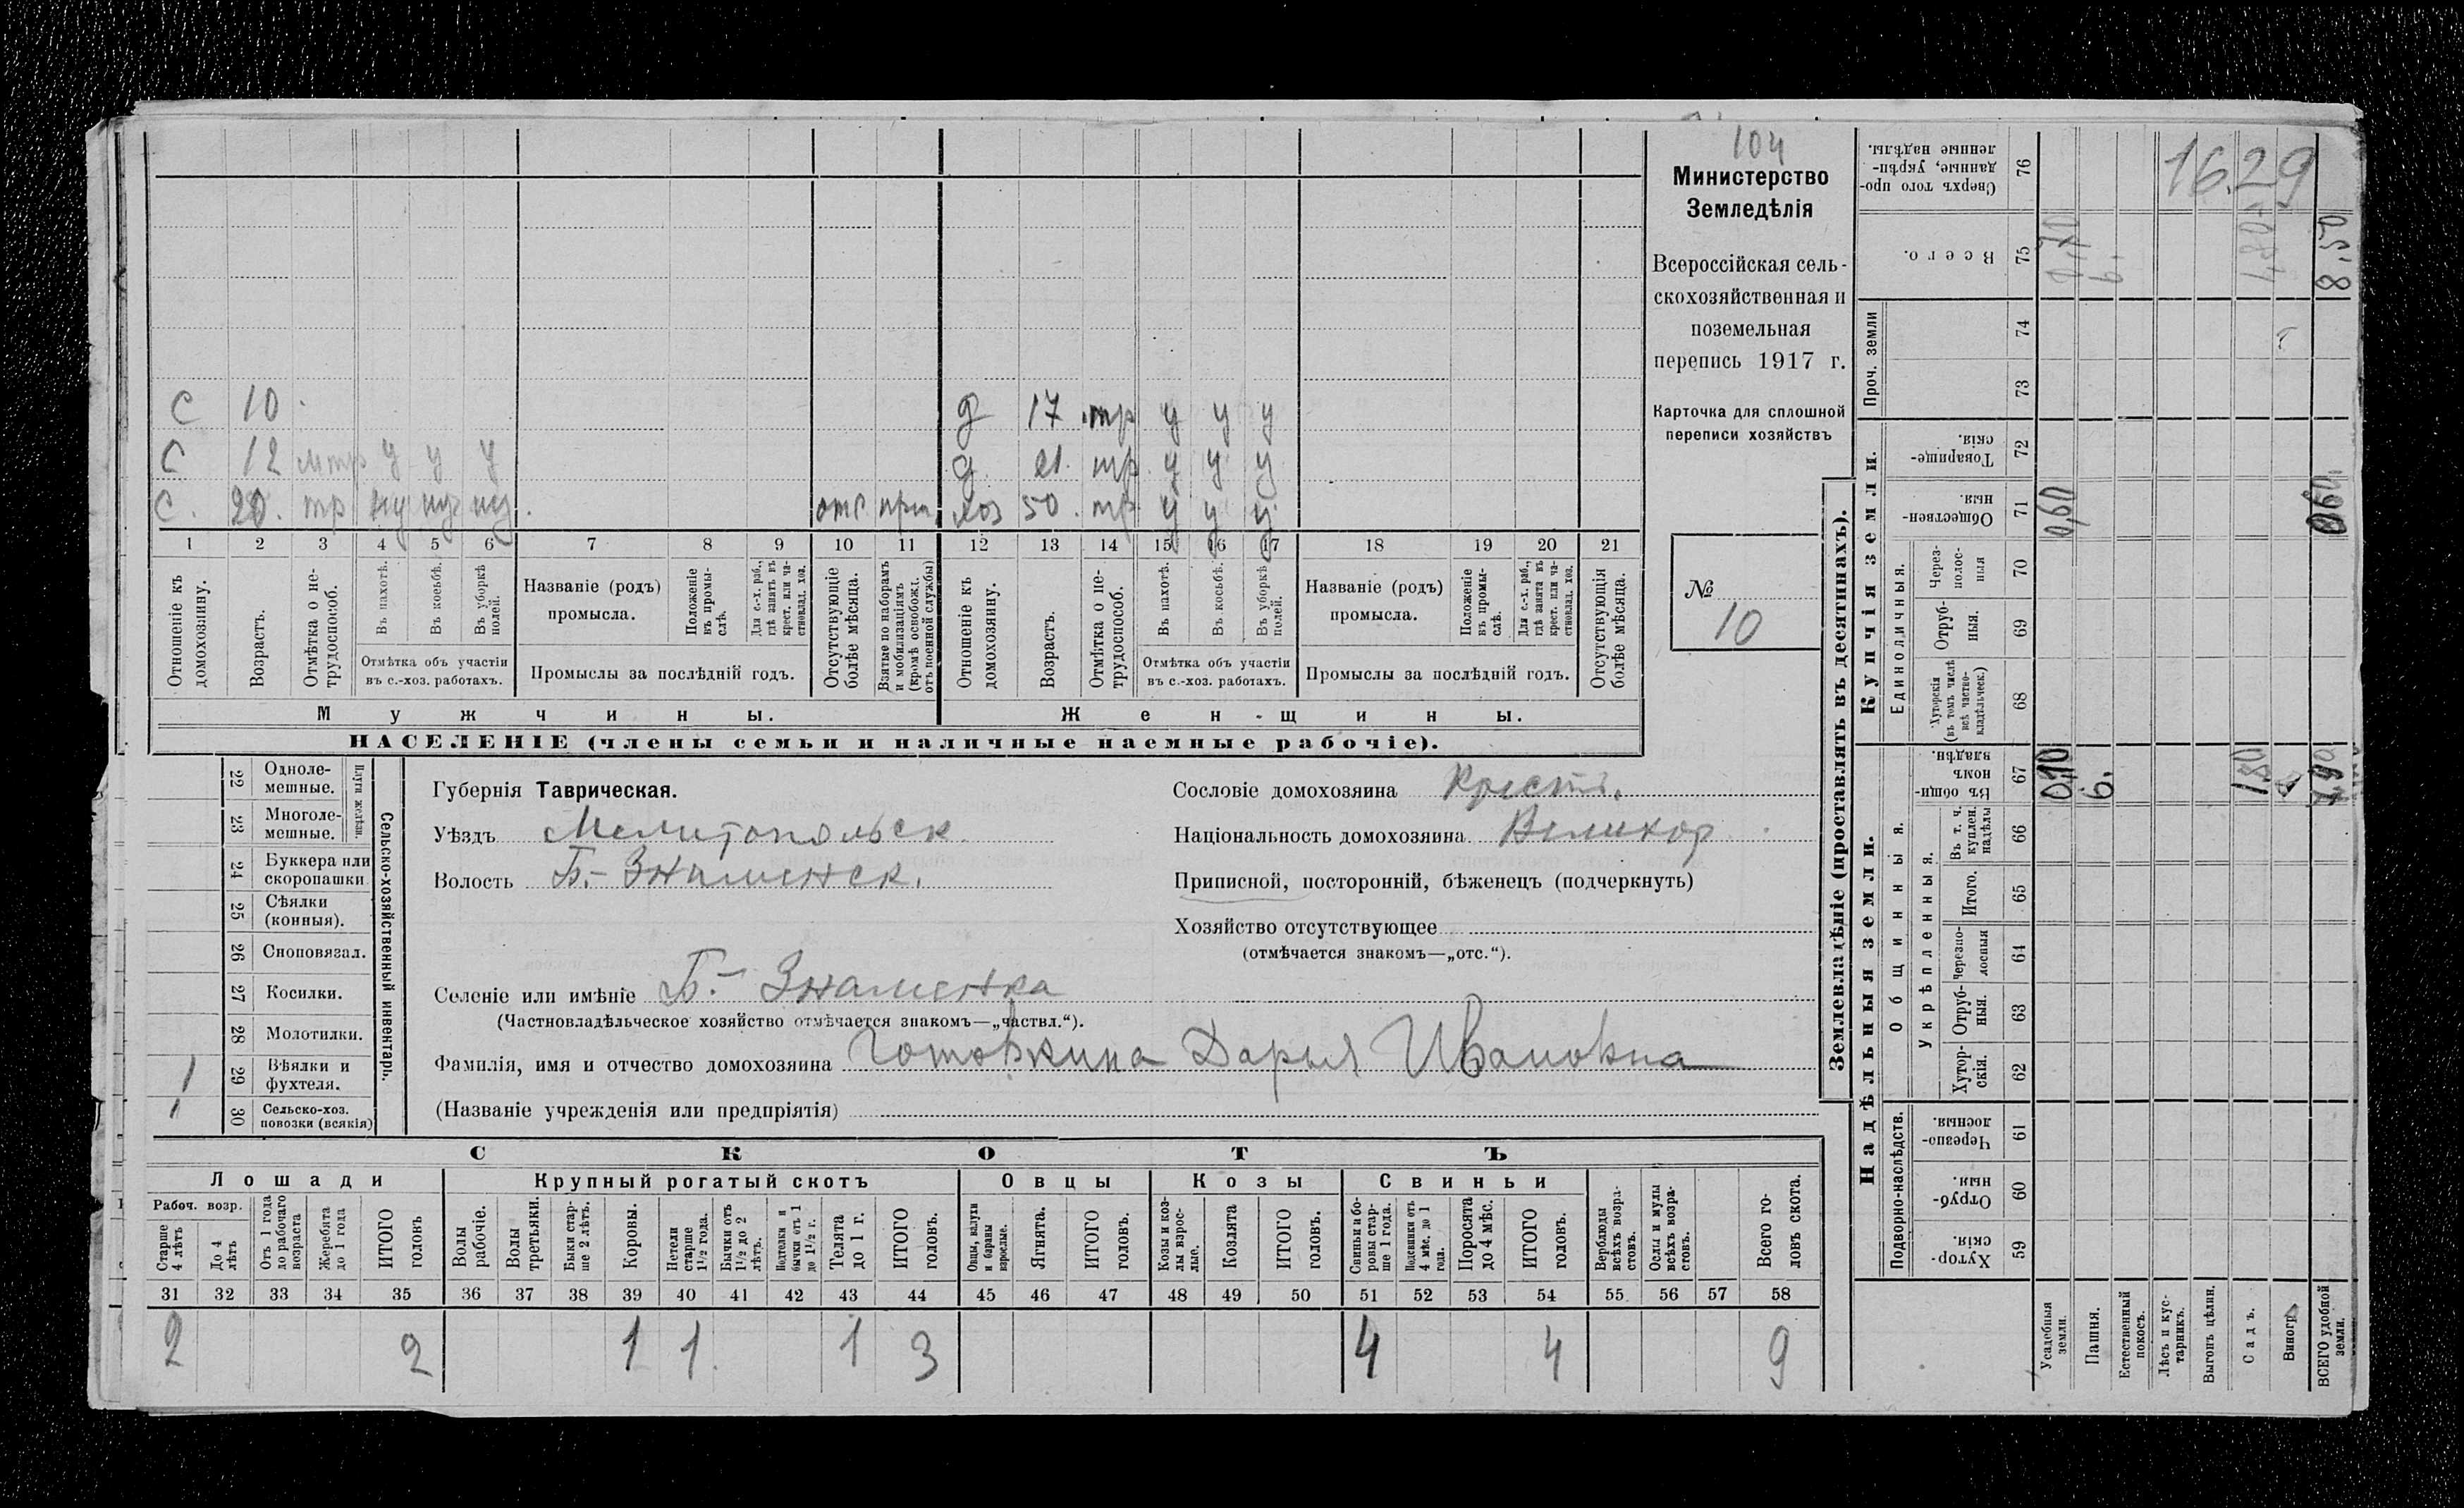 104
Министерство
Земледѣлія
Всероссійская сель-
скохозяйственная и
поземельная
перепись 1917 г.
Карточка для сплошной
переписи хозяйствъ
№
10
С 10 д 17 тр у у у
С 12 мтр у у у д 21 тр у у у
С. 20. тр ну ну ну отс хоз 50. тр у у у
1 2 3 4 5 6 7 8 9 10 11 12 13 14 15 16 17 18 19 20 21
Отношеніе къ домохозяину.
Возрастъ.
Отмѣтка о не-трудоспособ.
Въ пахотѣ.
Въ косьбѣ.
Въ уборкѣ полей.
Отмѣтка объ участіи въ с.-хоз. работахъ.
Названіе (родъ) промысла.
Положеніе въ промы-слѣ.
Для с.-х. раб., гдѣ занятъ въ крест. или ча-стновлад. хоз.
Промыслы за послѣдній годъ.
Отсутствующіе болѣе мѣсяца.
Взятые по наборамъ и мобилизаціямъ (кромѣ освобожд. отъ военной службы)
Отношеніе къ домохозяину.
Возрастъ.
Отмѣтка о не-трудоспособ.
Въ пахотѣ.
Въ косьбѣ.
Въ уборкѣ полей.
Отмѣтка объ участіи въ с.-хоз. работахъ.
Названіе (родъ) промысла.
Положеніе въ промы-слѣ.
Для с.-х. раб., гдѣ занята въ крест. или ча-стновлад. хоз.
Промыслы за послѣдній годъ.
Отсутствующія болѣе мѣсяца.
Мужчины. Жен-щины.
НАСЕЛЕНІЕ (члены семьи и наличные наемные рабочіе).
Сельско-хозяйственный инвентарь.
Плуги желѣзн.
22 Одноле-мешные.
23 Многоле-мешные.
24 Буккера или скоропашки
25 Сѣялки (конныя).
26 Сноповязал.
27 Косилки.
28 Молотилки.
1 29 Вѣялки и фухтеля.
1 30 Сельско-хоз. повозки (всякія)
Губернія Таврическая.
Уѣздъ Мелитопольск.
Волость Б.-Знаменск.
Селеніе или имѣніе Б.- Знаменка
(Частновладѣльческое хозяйство отмѣчается знакомъ—„частвл.“).
Фамилія, имя и отчество домохозяина Готовкина Дарья Ивановна
(Названіе учрежденія или предпріятія)
Сословіе домохозяина Крест.
Національность домохозяина Великор
Приписной, посторонній, бѣженецъ (подчеркнуть)
Хозяйство отсутствующее
(отмѣчается знакомъ—„отс.“).
СКОТЪ
Лошади Крупный рогатый скотъ Овцы Козы Свиньи
Рабоч. возр.
Старше 4 лѣтъ
До 4 лѣтъ
Отъ 1 года до рабочаго возраста
Жеребята до 1 года
ИТОГО головъ
Волы рабочіе.
Волы третьяки.
Быки стар-ше 2 лѣтъ.
Коровы.
Нетели старше 1½ года.
Бычки отъ 1½ до 2 лѣтъ.
Подтелки и бычки отъ 1 до 1½ г.
Телята до 1 г.
ИТОГО головъ.
Овцы, валухи и бараны взрослые.
Ягнята.
ИТОГО головъ.
Козы и коз-лы взрос-лые.
Козлята
ИТОГО головъ.
Свиньи и бо-ровы стар-ше 1 года.
Подсвинки отъ 4 мѣс. до 1 года.
Поросята до 4 мѣс.
ИТОГО головъ.
Верблюды всѣхъ возра-стовъ.
Ослы и мулы всѣхъ возра-стовъ.
Всего го-ловъ скота.
31 32 33 34 35 36 37 38 39 40 41 42 43 44 45 46 47 48 49 50 51 52 53 54 55 56 57 58
2 2 1 1 1 3 4 4 9
Землевладѣніе (проставлять въ десятинахъ).
Надѣльныя земли.
Купчія земли.
Проч. земли
Подворно-наслѣдств.
Общинныя.
Укрѣпленныя.
Единоличныя.
Хутор-скія. 59
Отруб-ныя. 60
Черезпо-лосныя 61
Хутор-скія. 62
Отруб-ныя. 63
Черезпо-лосныя 64
Итого. 65
Въ т. ч. куплен. надѣлы 66
Въ общин-номъ владѣн. 67
Хуторскія (въ томъ числѣ всѣ частно-владѣльческ.) 68
Отруб-ныя. 69
Через-полос-ныя 70
Обществен-ныя. 71
Товарище-скія. 72
73
74
Всего. 75
Сверхъ того про-данные, укрѣп-ленные надѣлы. 76
Усадебныя земли. 0,10 0,60 0,70
Пашня. 6. 6.
Естественный покосъ.
Лѣсъ и кус-тарникъ.
Выгонъ цѣлин.
Садъ. 1,80 1,80
Виногр
ВСЕГО удобной земли. 7,90 0,60 8,50
16.29